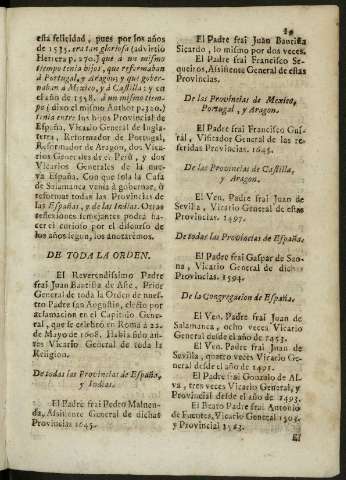 esta felicidad, pues por los años
de 1535. era tan gloriosa (advirtio
Herrera p. 270.) que à un mismo
tiempo tenia hijos, que reformaban
à Portugal, y Aragon; y que gober-
naban à Mexico, y à Castilla: y en
el año de 1558. à un mismo tiempo
(dixo el mismo Author p. 320.)
tenia entre los hijos Provincial de
España, Vicario General de Ingla-
terra, Reformador de Portugal,
Reformador de Aragon, dos Vica-
rios Generales de el Perù, y dos
Vicarios Generales de la nueva
España. Con que sola la Casa
de Salamanca venia à gobernar, ò
reformar todas las Provincias de
las Españas, y de las Indias. Otras
reflexiones semejantes podrà ha-
cer el curioso por el discurso de
los años segun, los anotarèmos.
DE TODA LA ORDEN.
El Reverendissimo Padre
frai Juan Bautista de Aste, Prior
General de toda la Orden de nues-
tro Padre san Augustin, electo por
aclamacion en el Capitulo Gene-
ral, que se celebrò en Roma à 22.
de Mayo de 1608. Habia sido an-
tes Vicario General de toda la
Religion.
De todas las Provincias de España,
y Indias.
El Padre frai Pedro Maluen-
da, Assistente General de dichas
Provincias 1645.
El Padre frai Juan Bautista
Sicardo, lo mismo por dos veces.
El Padre frai Francisco Se-
queiros, Assistente General de estas
Provincias.
De las Provincias de Mexico,
Portugal, y Aragon.
El Padre frai Francisco Gus-
ral, Visitador General de las re-
feridas Provincias. 1645.
De las Provincias de Castilla,
y Aragon.
El Ven. Padre frai Juan de
Sevilla, Vicario General de estas
Provincias. 1497.
De todas las Provincias de España.
El Padre frai Gaspar de Sao-
na, Vicario General de dichas
Provincias. 1594.
De la Congregacion de España.
El Ven. Padre frai Juan de
Salamanca, ocho veces Vicario
General desde el año de 1453.
El Ven. Padre frai Juan de
Sevilla, quatro veces Vicario Ge-
neral desde el año de 1491.
El Padre frai Gonzalo de Al-
va, tres veces Vicario General, y
Provincial desde el año de 1493.
El Beato Padre frai Antonio
de Fuentes, Vicario General 1508.
y Provincial 1523.
El